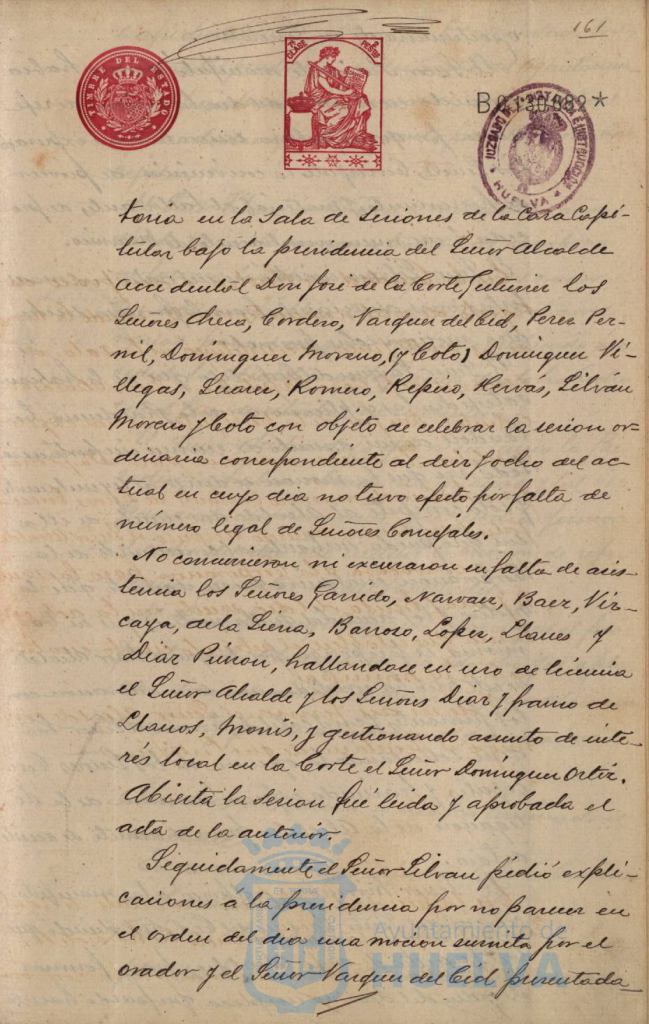 161
TIMBRE DEL ESTADO
CLASE
PESETAS
B.0.130.982*
JUZGADO DE E INSTRUCCIÓN
HUELVA
toria en la Sala de Sesiones de la Casa Capi-
tular bajo la presidencia del Señor Alcalde
accidental Don José de la Corte Gutierrez los
Señores Checa, Cordero, Vazquez del Cid, Perez Per-
nil, Dominguez Moreno, (y Coto) Dominguez Vi-
llegas, Suarez, Romero, Repiso, Hervás, Silván
Moreno y Coto con objeto de celebrar la sesion or-
dinaria correspondiente al diez y ocho del ac-
tual en cuyo dia no tuvo efecto por falta de
número legal de Señores Concejales.
No concurrieron ni excusaron su falta de asis-
tencia los Señores Garrido, Narvaez, Baez, Viz-
caya, de la Sierra, Barroso, Lopez, Llanes y
Diaz Punzon, hallandose en uso de licencia
el Señor Alcalde y los Señores Diaz y franco de
Llanos, Monís, y gestionando asunto de inte-
rés local en la Corte el Señor Dominguez Ortiz.
Abierta la sesion fué leida y aprobada el
acta de la anterior.
Seguidamente el Señor Silvan pidió expli-
caciones á la presidencia por no parecer en
el orden del dia una mocion suscrita por el
orador y el Señor Vazquez del Cid presentada
Ayuntamiento de
HUELVA